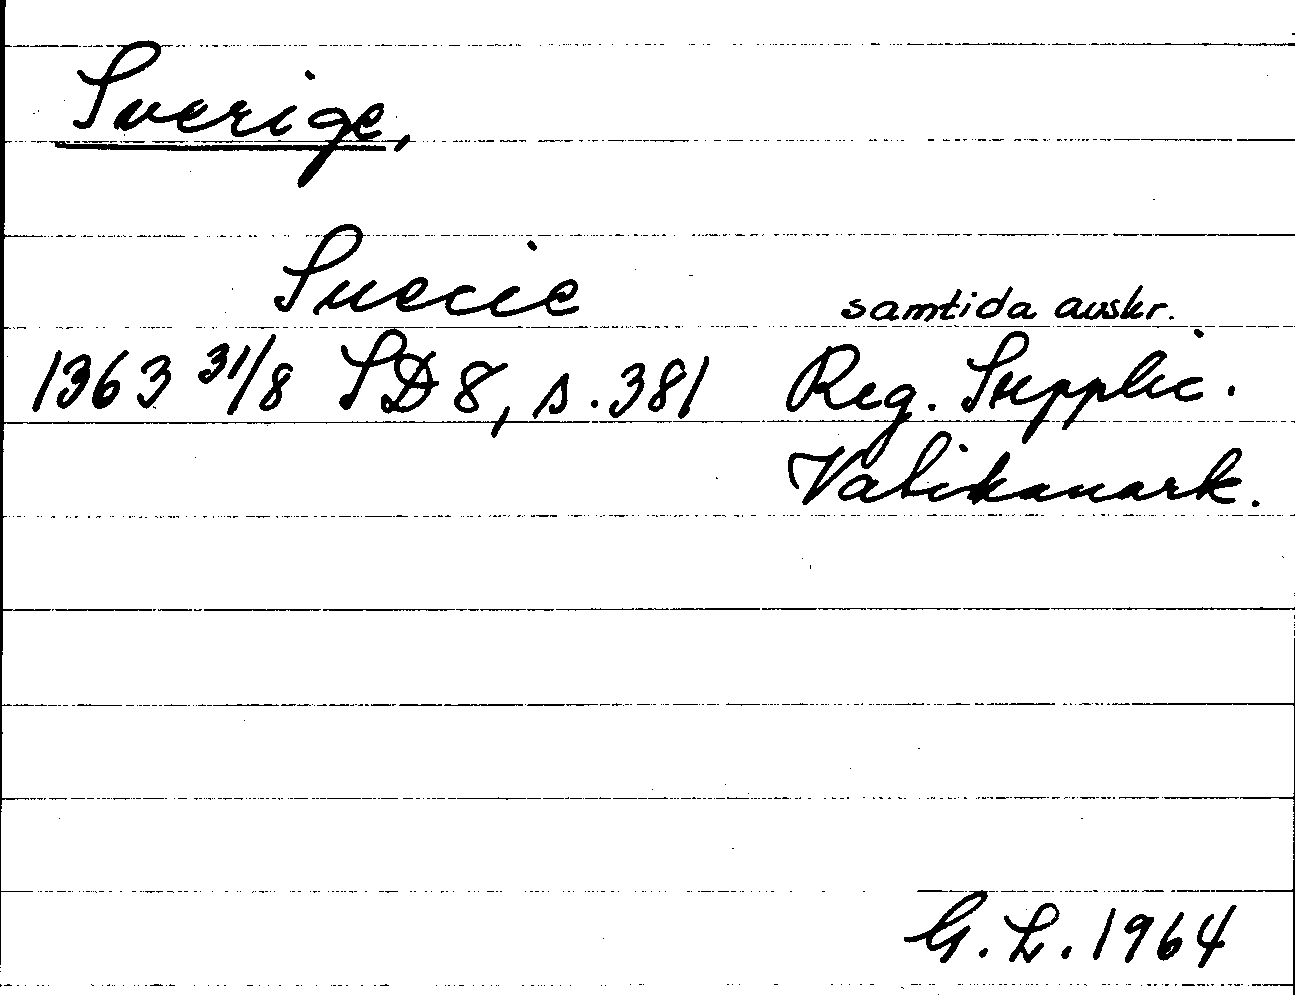 Sverige,
Suecie
samtida avskr.
1363 31/8 SD 8, s. 381 Reg. Supplic.
Vatikanark.
G. L. 1964